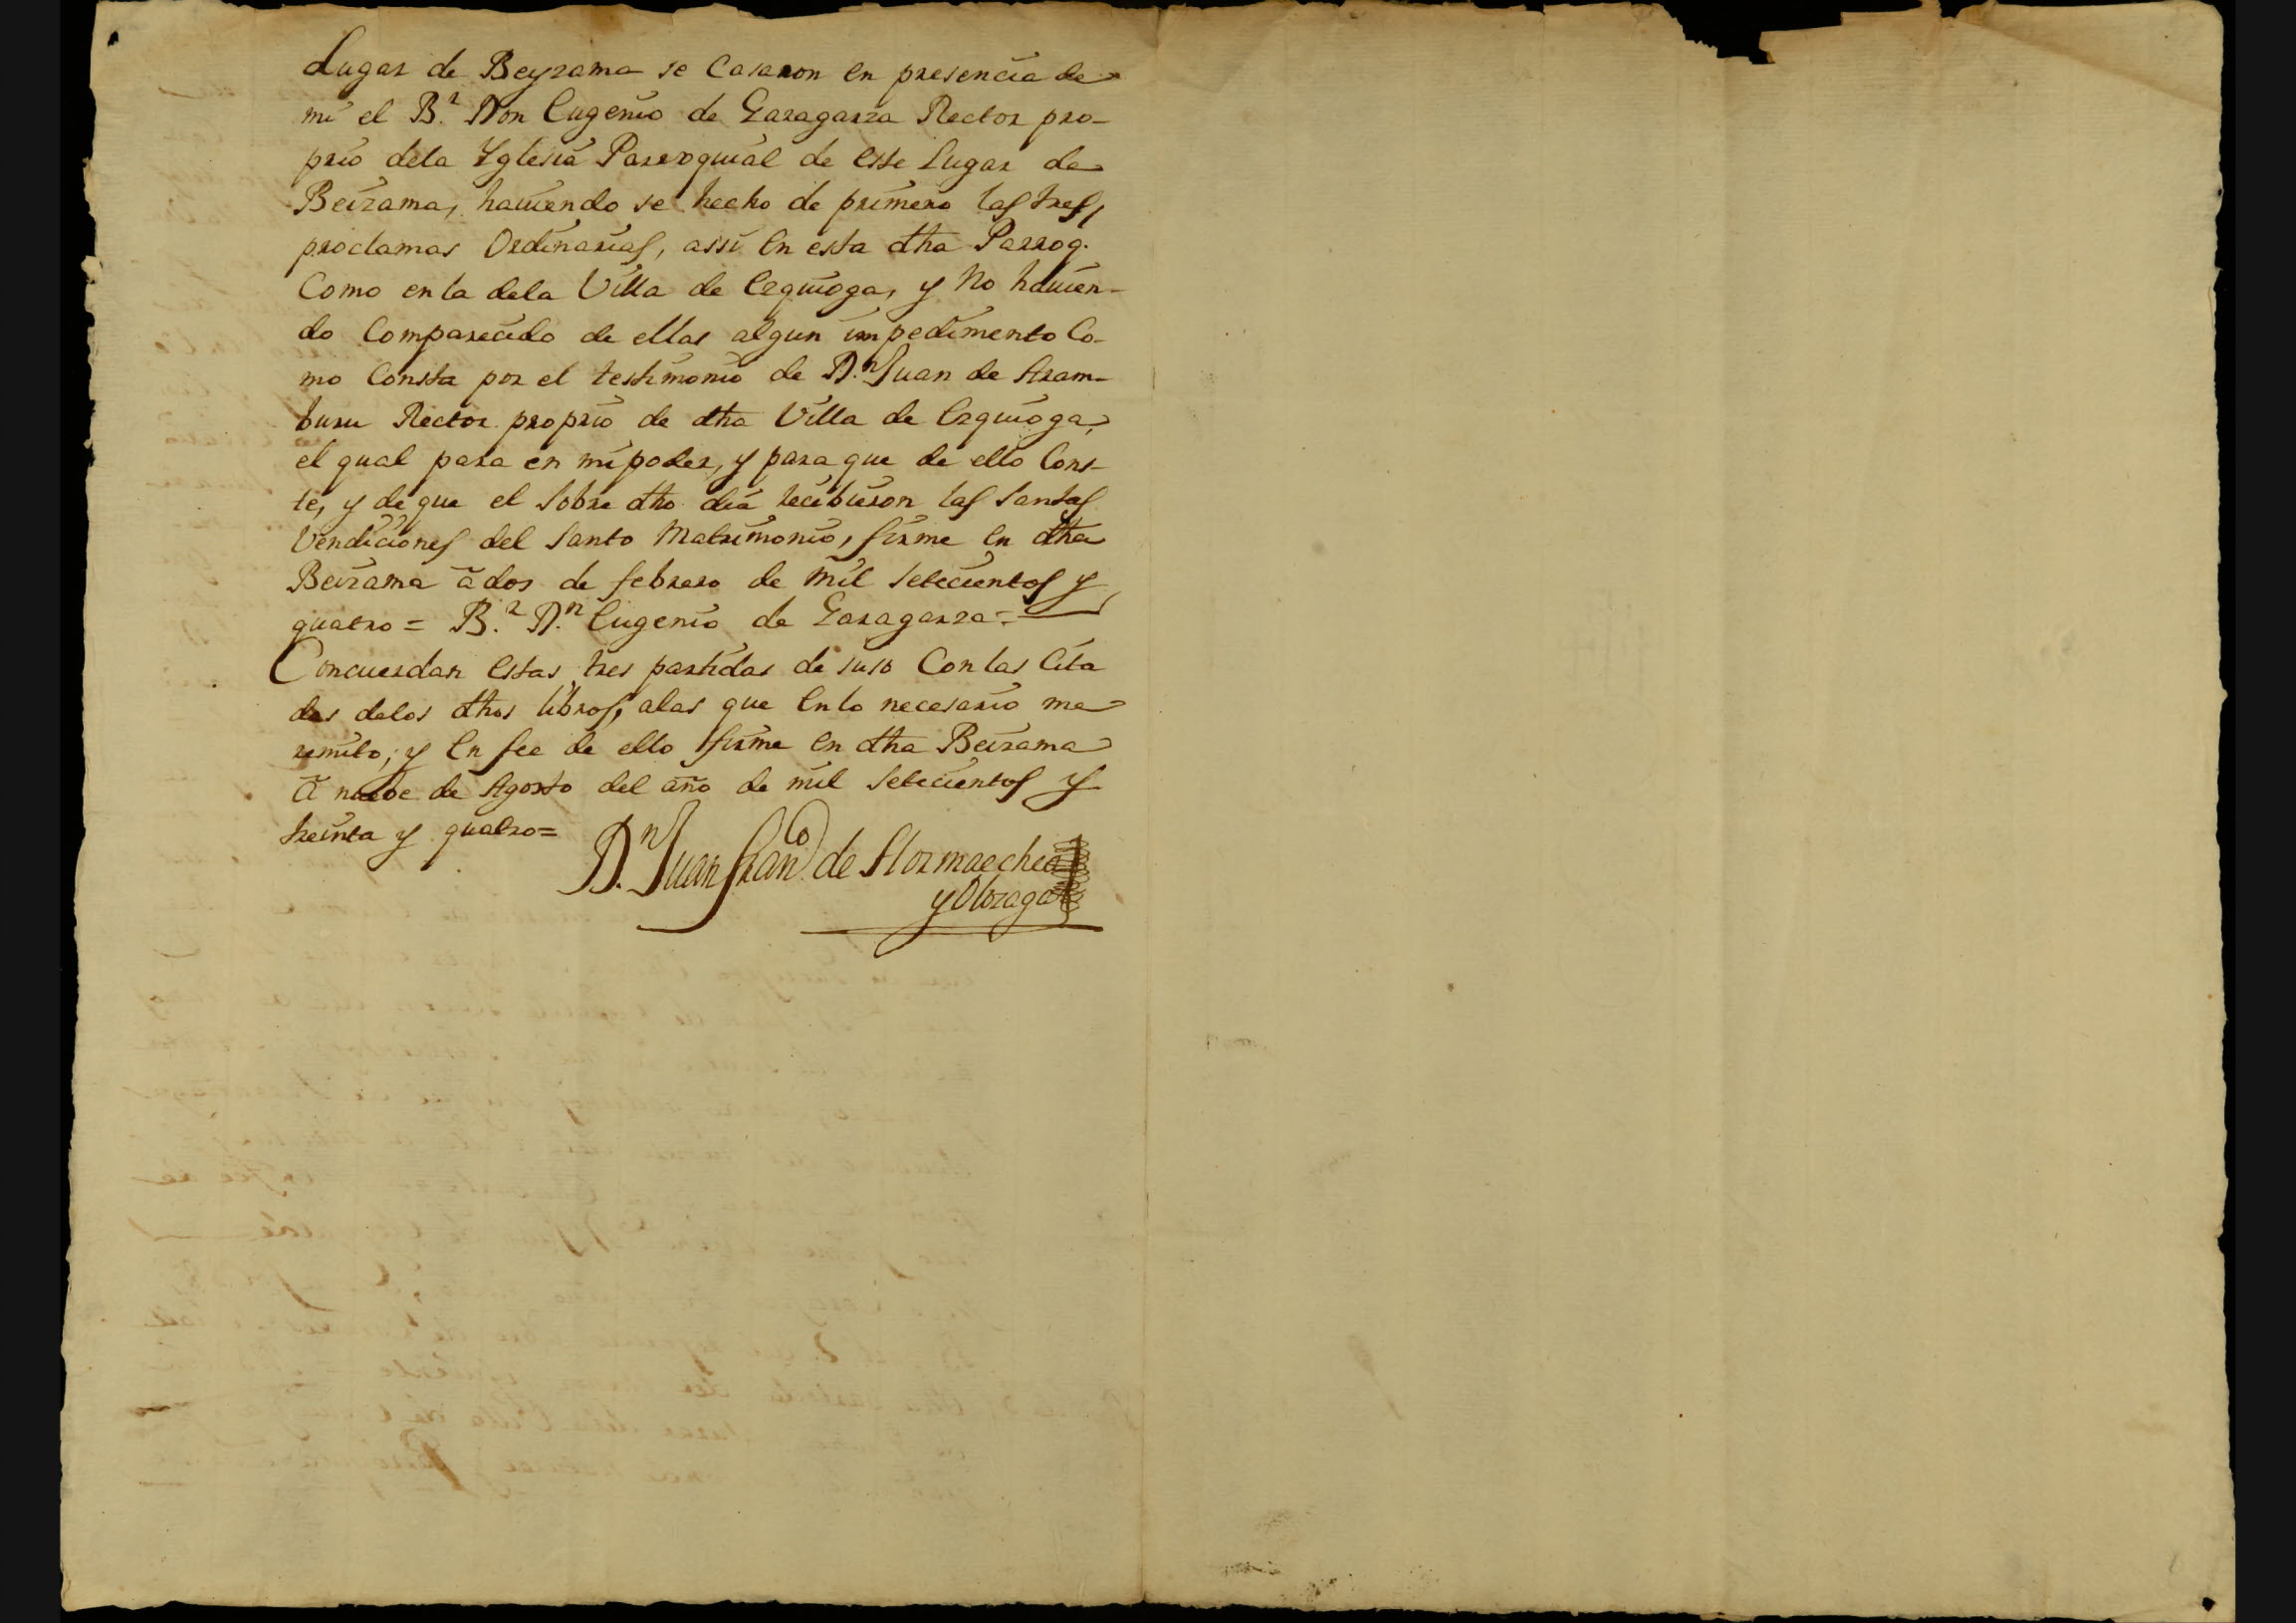 Lugar de Beyzama se Casaron en presencia de
mi el B.r Don Eugenio de Garagarza Rector pro-
prio dela Yglesia Parroquial de este Lugar de
Beizama, haviendo se hecho de primero las tres
proclamas Ordinarias, assi en esta dha Parroq.
Como en la dela Villa de Ezquioga, y No havien-
do Comparecido de ellas algun impedimento Co-
mo Consta por el testimonio de D.n Juan de Aram-
buru Rector proprio de dha Villa de Ezquioga,
el qual para en mi poder, y para que de ello Cons-
te, y de que el sobre dho dia recibieron las santas
Vendiciones del santo Matrimonio, firme en dha
Beizama à dos de febrero de mil setecientos y
quatro = B.r D.n Eugenio de Garagarza =
Concuerdan estas tres partidas de suso Con las Cita
das delos dhos libros, alas que en lo necesario me
remito; y en fee de ello firme en dha Beizama
à nueve de Agosto del año de mil setecientos y
treinta y quatro=
D.n Juan Fran.co de Hormaechea
y Olozaga